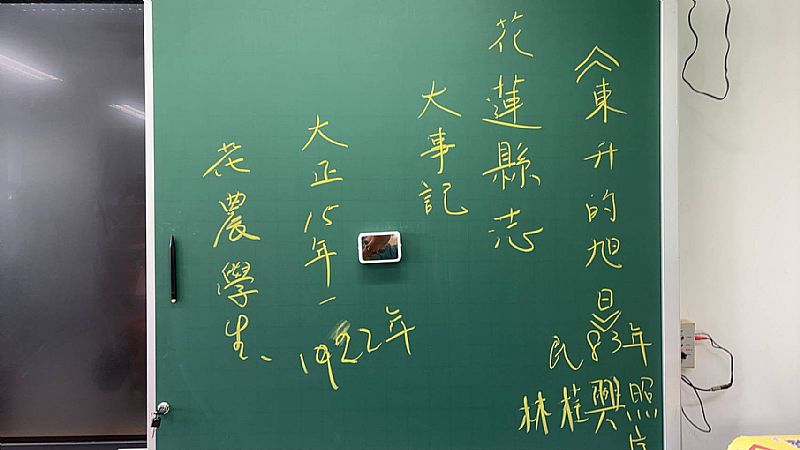 《東升的旭日》
民83年
林桂興照片
花蓮縣志
大事記
大正15年-
1922年
花農學生、